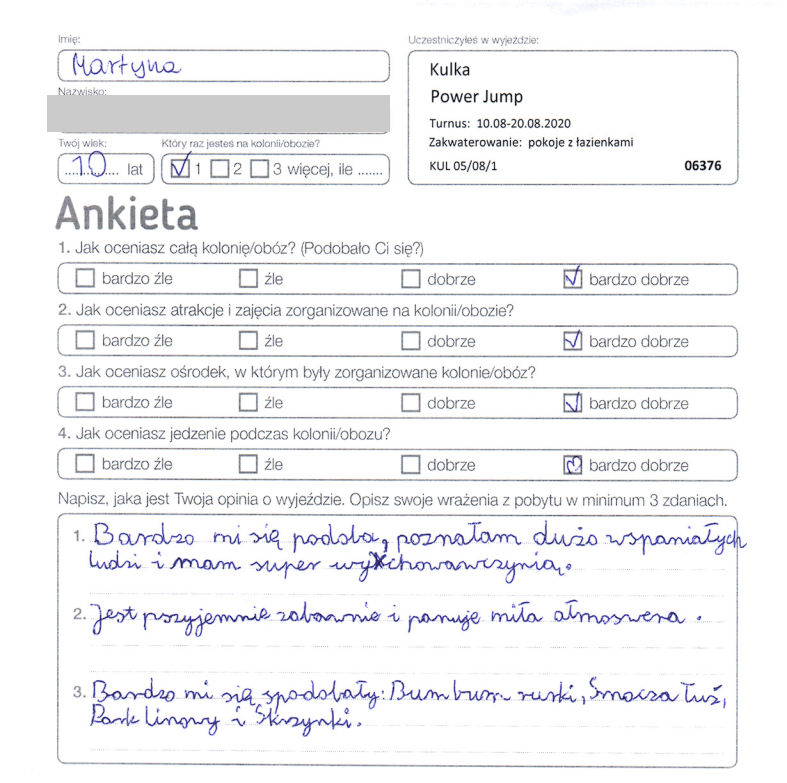 Imię:
Martyna
Nazwisko:
Twój wiek:
10 lat
Który raz jesteś na kolonii/obozie?
1 2 3 więcej, ile .......
Uczestniczyłeś w wyjeździe:
Kulka
Power Jump
Turnus: 10.08-20.08.2020
Zakwaterowanie: pokoje z łazienkami
KUL 05/08/1 06376
Ankieta
1. Jak oceniasz całą kolonię/obóz? (Podobało Ci się?)
bardzo źle źle dobrze bardzo dobrze
2. Jak oceniasz atrakcje i zajęcia zorganizowane na kolonii/obozie?
bardzo źle źle dobrze bardzo dobrze
3. Jak oceniasz ośrodek, w którym były zorganizowane kolonie/obóz?
bardzo źle źle dobrze bardzo dobrze
4. Jak oceniasz jedzenie podczas kolonii/obozu?
bardzo źle źle dobrze bardzo dobrze
Napisz, jaka jest Twoja opinia o wyjeździe. Opisz swoje wrażenia z pobytu w minimum 3 zdaniach.
1. Bardzo mi się podoba, poznałam dużo wspaniałych
ludzi i mam super wychowawczynią.
2. Jest pszyjemnie zabawnie i panuje miła atmoswera.
3. Bardzo mi się spodobały: Bum bum ruski, Smocza
Park linowy i Skrzynki.